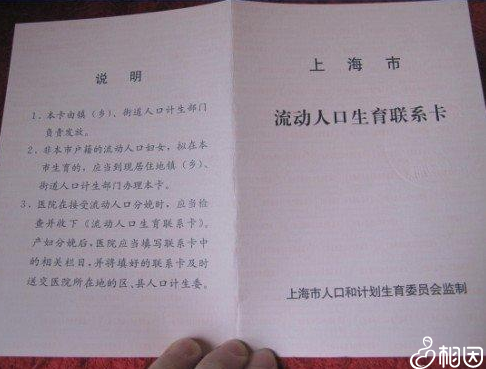 说 明
1、本卡由镇(乡)、街道人口计生部门
负责发放。
2、非本市户籍的流动人口妇女，拟在本
市生育的，应当到现居住地镇(乡)、
街道人口计生部门办理本卡。
3、医院在接受流动人口分娩时，应当检
查并收下《流动人口生育联系卡》。
产妇分娩后，医院应当填写联系卡中
的相关栏目，并将填好的联系卡及时
送交医院所在地的区、县人口计生委。
上 海 市
流动人口生育联系卡
上海市人口和计划生育委员会监制
相因